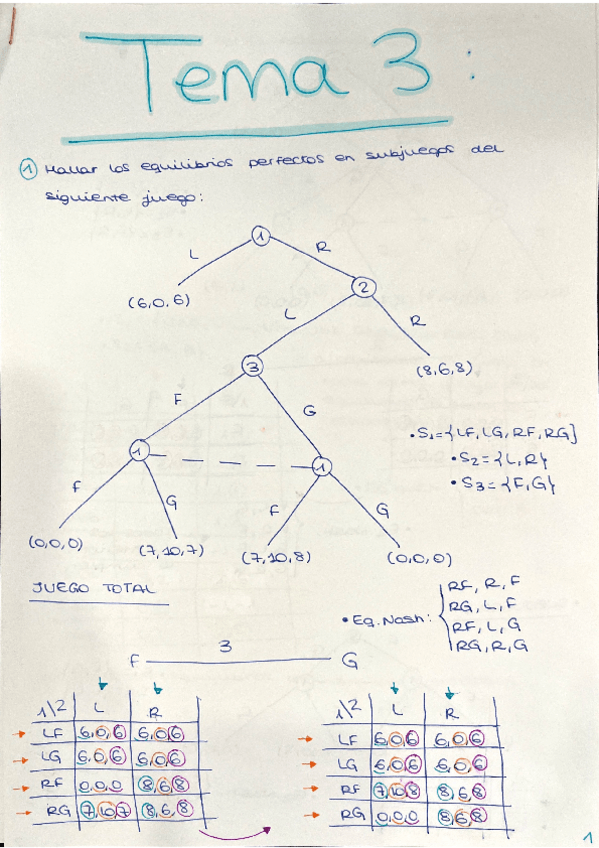 Tema 3:
① Hallar los equilibrios perfectos en subjuegos del
siguiente juego:
1
L
R
(6,0,6)
2
L
R
3
(8,6,8)
F
G
• S₁={LF, LG, RF, RG}
• S₂={L,R}
• S₃={F,G}
1
1
F
G
F
G
(0,0,0)
(7,10,7)
(7,10,8)
(0,0,0)
JUEGO TOTAL
• Eq. Nash:
RF, R, F
RG, L, F
RF, L, G
RG, R, G
3
F
G
1\2 L R
LF 6,0,6 6,0,6
LG 6,0,6 6,0,6
RF 0,0,0 8,6,8
RG 7,10,7 8,6,8
1\2 L R
LF 6,0,6 6,0,6
LG 6,0,6 6,0,6
RF 7,10,8 8,6,8
RG 0,0,0 8,6,8
1